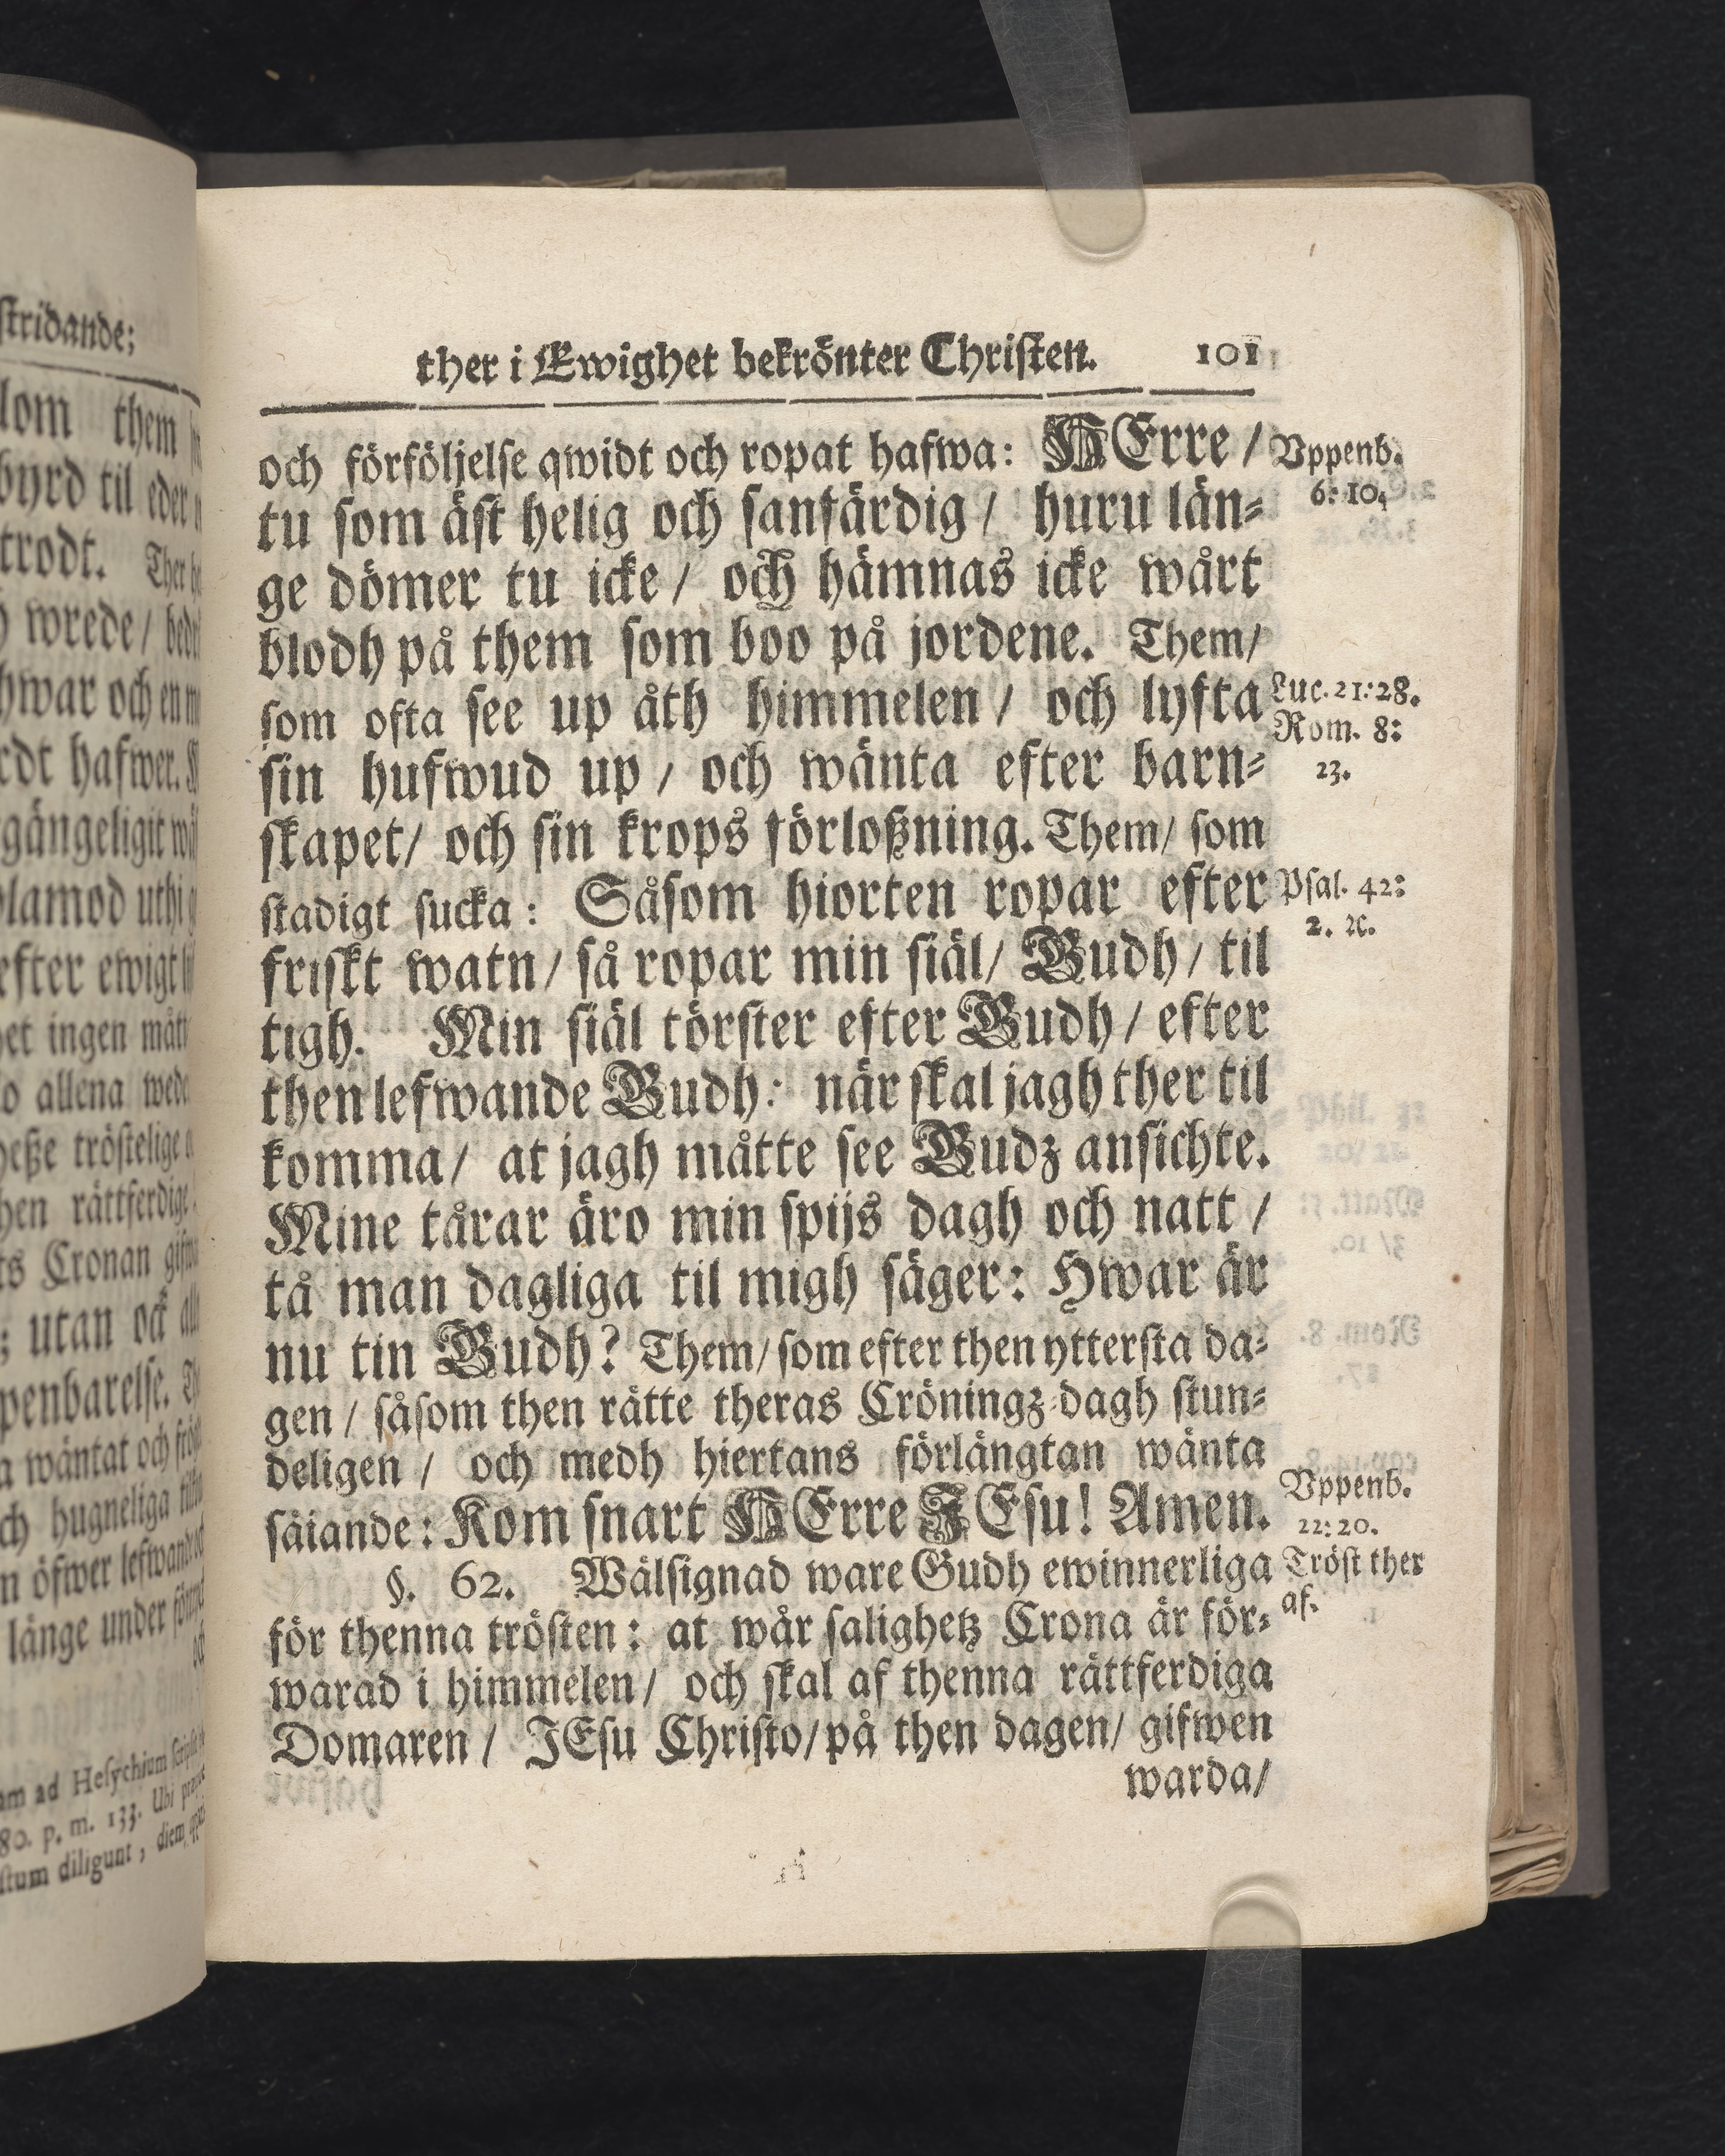 ther i Ewighet bekrönter Christen. 101
och förföljelse qwidt och ropat hafwa: HErre /
Vppenb.
6: 10.
tu som äst helig och sanfärdig / huru län-
ge dömer tu icke / och hämnas icke wårt
blodh på them som boo på jordene. Them/
som ofta see up åth himmelen / och lyfta
Luc. 21:28.
Rom. 8:
23.
sin hufwud up / och wänta efter barn-
skapet/ och sin krops förloßning. Them/ som
stadigt sucka: Såsom hiorten ropar efter
Psal. 42:
2. ꝛc.
friskt watn/ så ropar min siäl/ Gudh / til
tigh. Min siäl törster efter Gudh / efter
then lefwande Gudh: när skal jagh ther til
komma/ at jagh måtte see Gudz ansichte.
Mine tårar äro min spijs dagh och natt /
tå man dagliga til migh säger: Hwar är
nu tin Gudh? Them/ som efter then yttersta da-
gen / såsom then rätte theras Cröningz-dagh stun-
deligen / och medh hiertans förlängtan wänta
säiande: Kom snart HErre JEsu! Amen.
Vppenb.
22: 20.
§. 62. Wälsignad ware Gudh ewinnerliga
Tröst ther
af.
för thenna trösten: at wår salighetz Crona är för-
warad i himmelen/ och skal af thenna rättferdiga
Domaren / JEsu Christo/ på then dagen/ gifwen
warda/
stridande;
lom them
byrd til eder
trodt. Ther
wrede/
hwar och en
hafwer.
uthi
efter ewigt
ingen
allena
tröstelige
rättferdige
Cronan
utan ock
wäntat och
hugneliga
öfwer
länge under
ad Hesychium
80. p. m. 133. Ubi
diligunt, diem